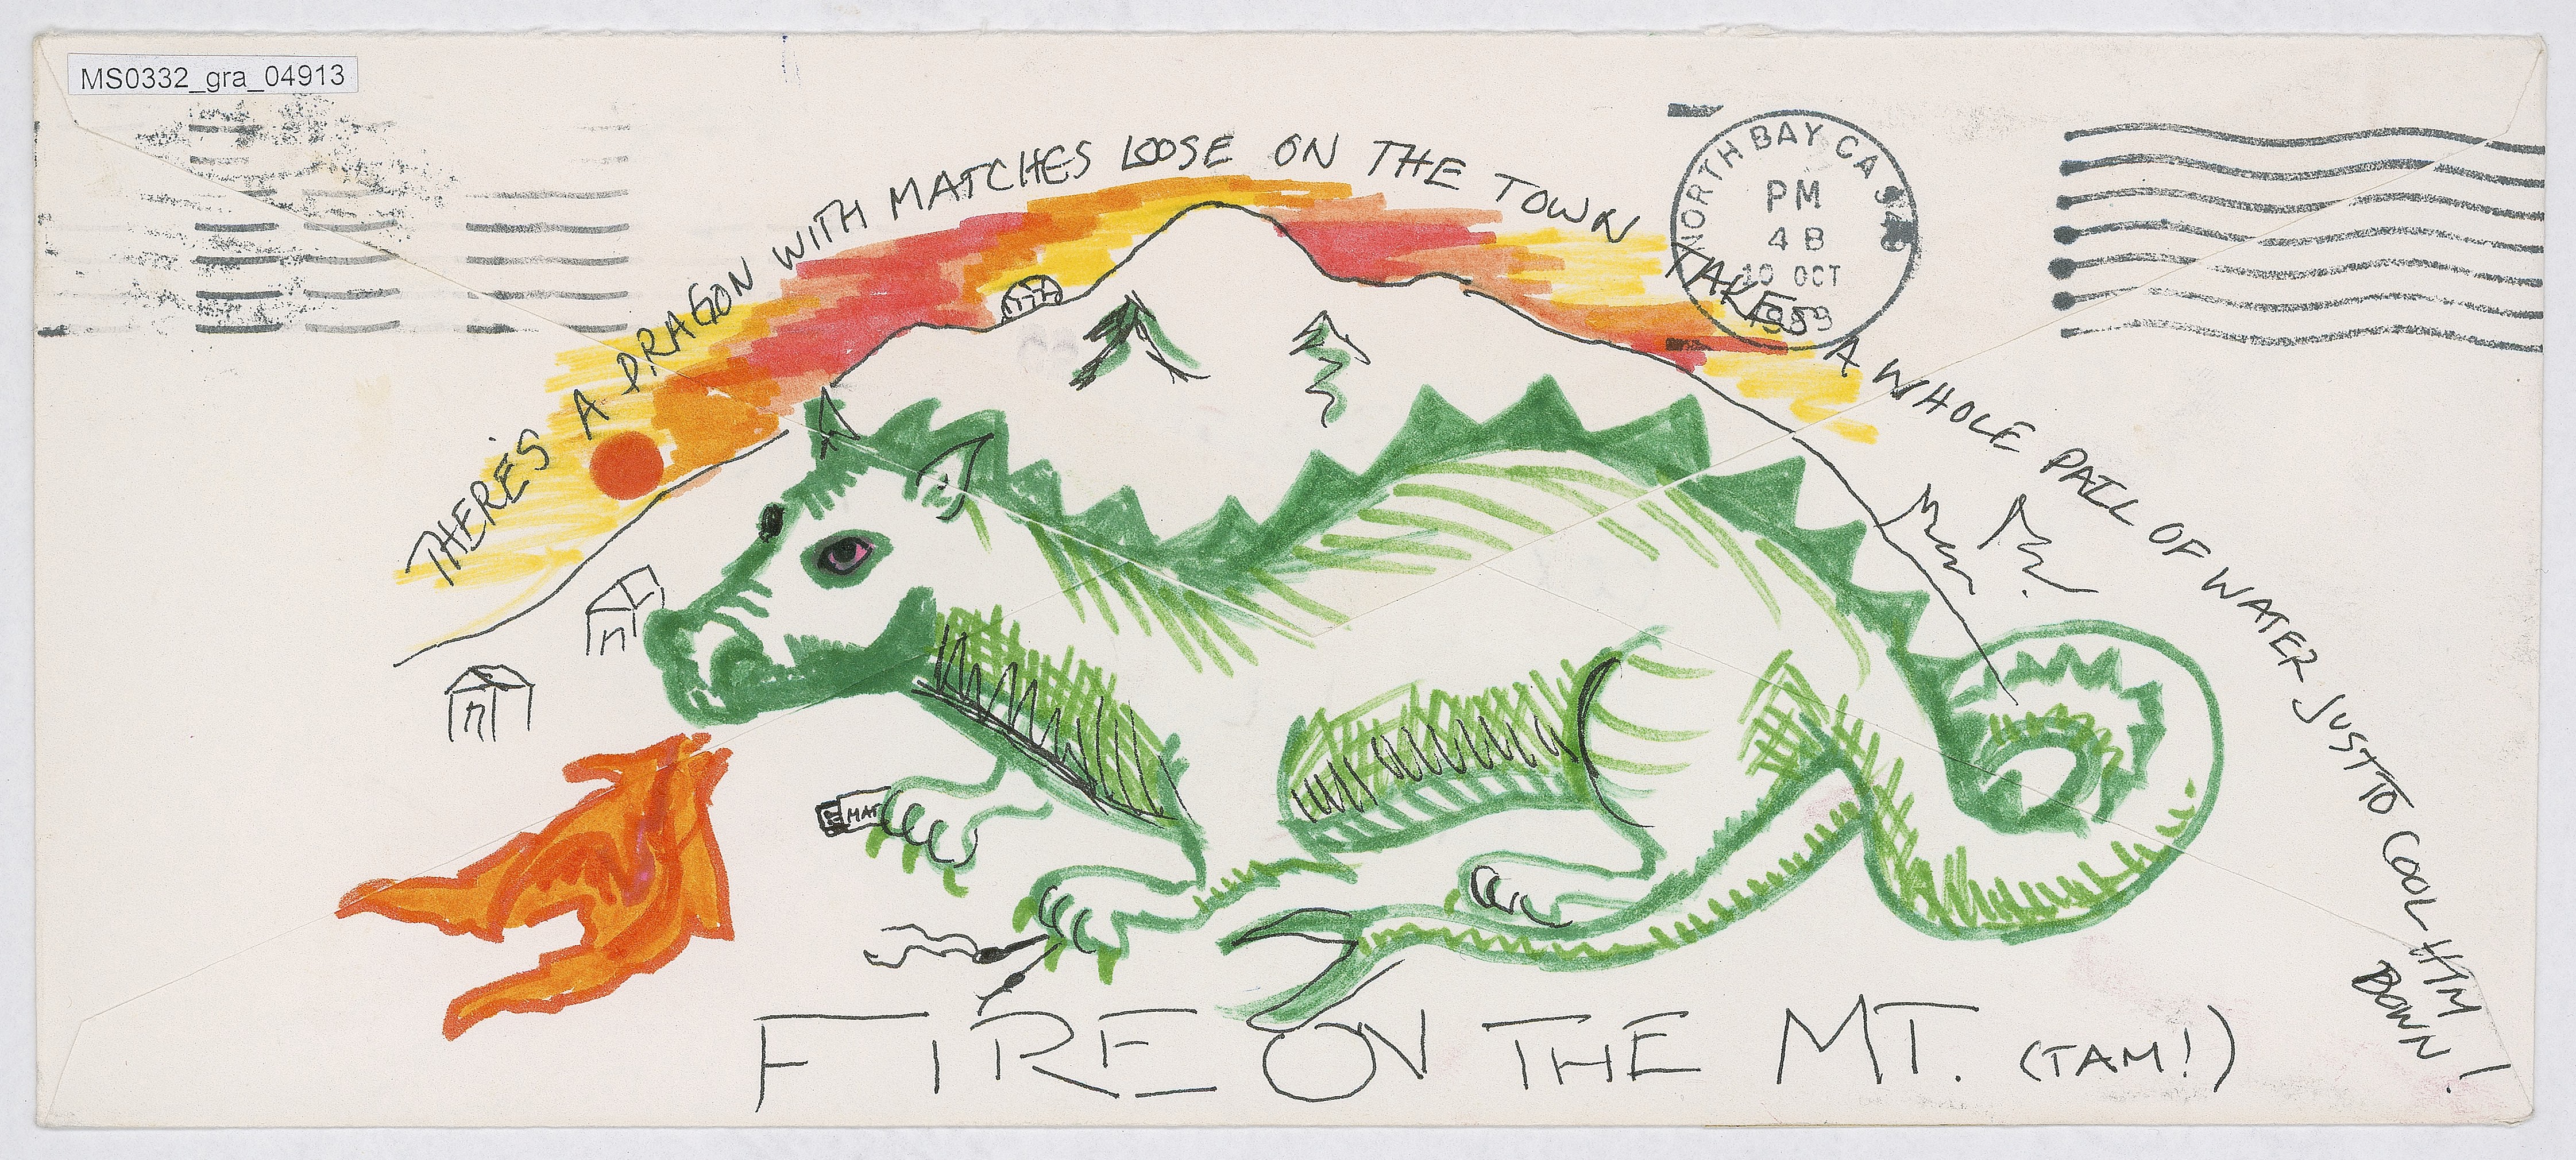 MS0332_gra_04913
THERE'S A DRAGON WITH MATCHES LOOSE ON THE TOWN TAKES A WHOLE PAIL OF WATER JUST TO COOL HIM DOWN!
NORTH BAY CA
PM
4 B
10 OCT
MAT
FIRE ON THE MT. (TAM!)